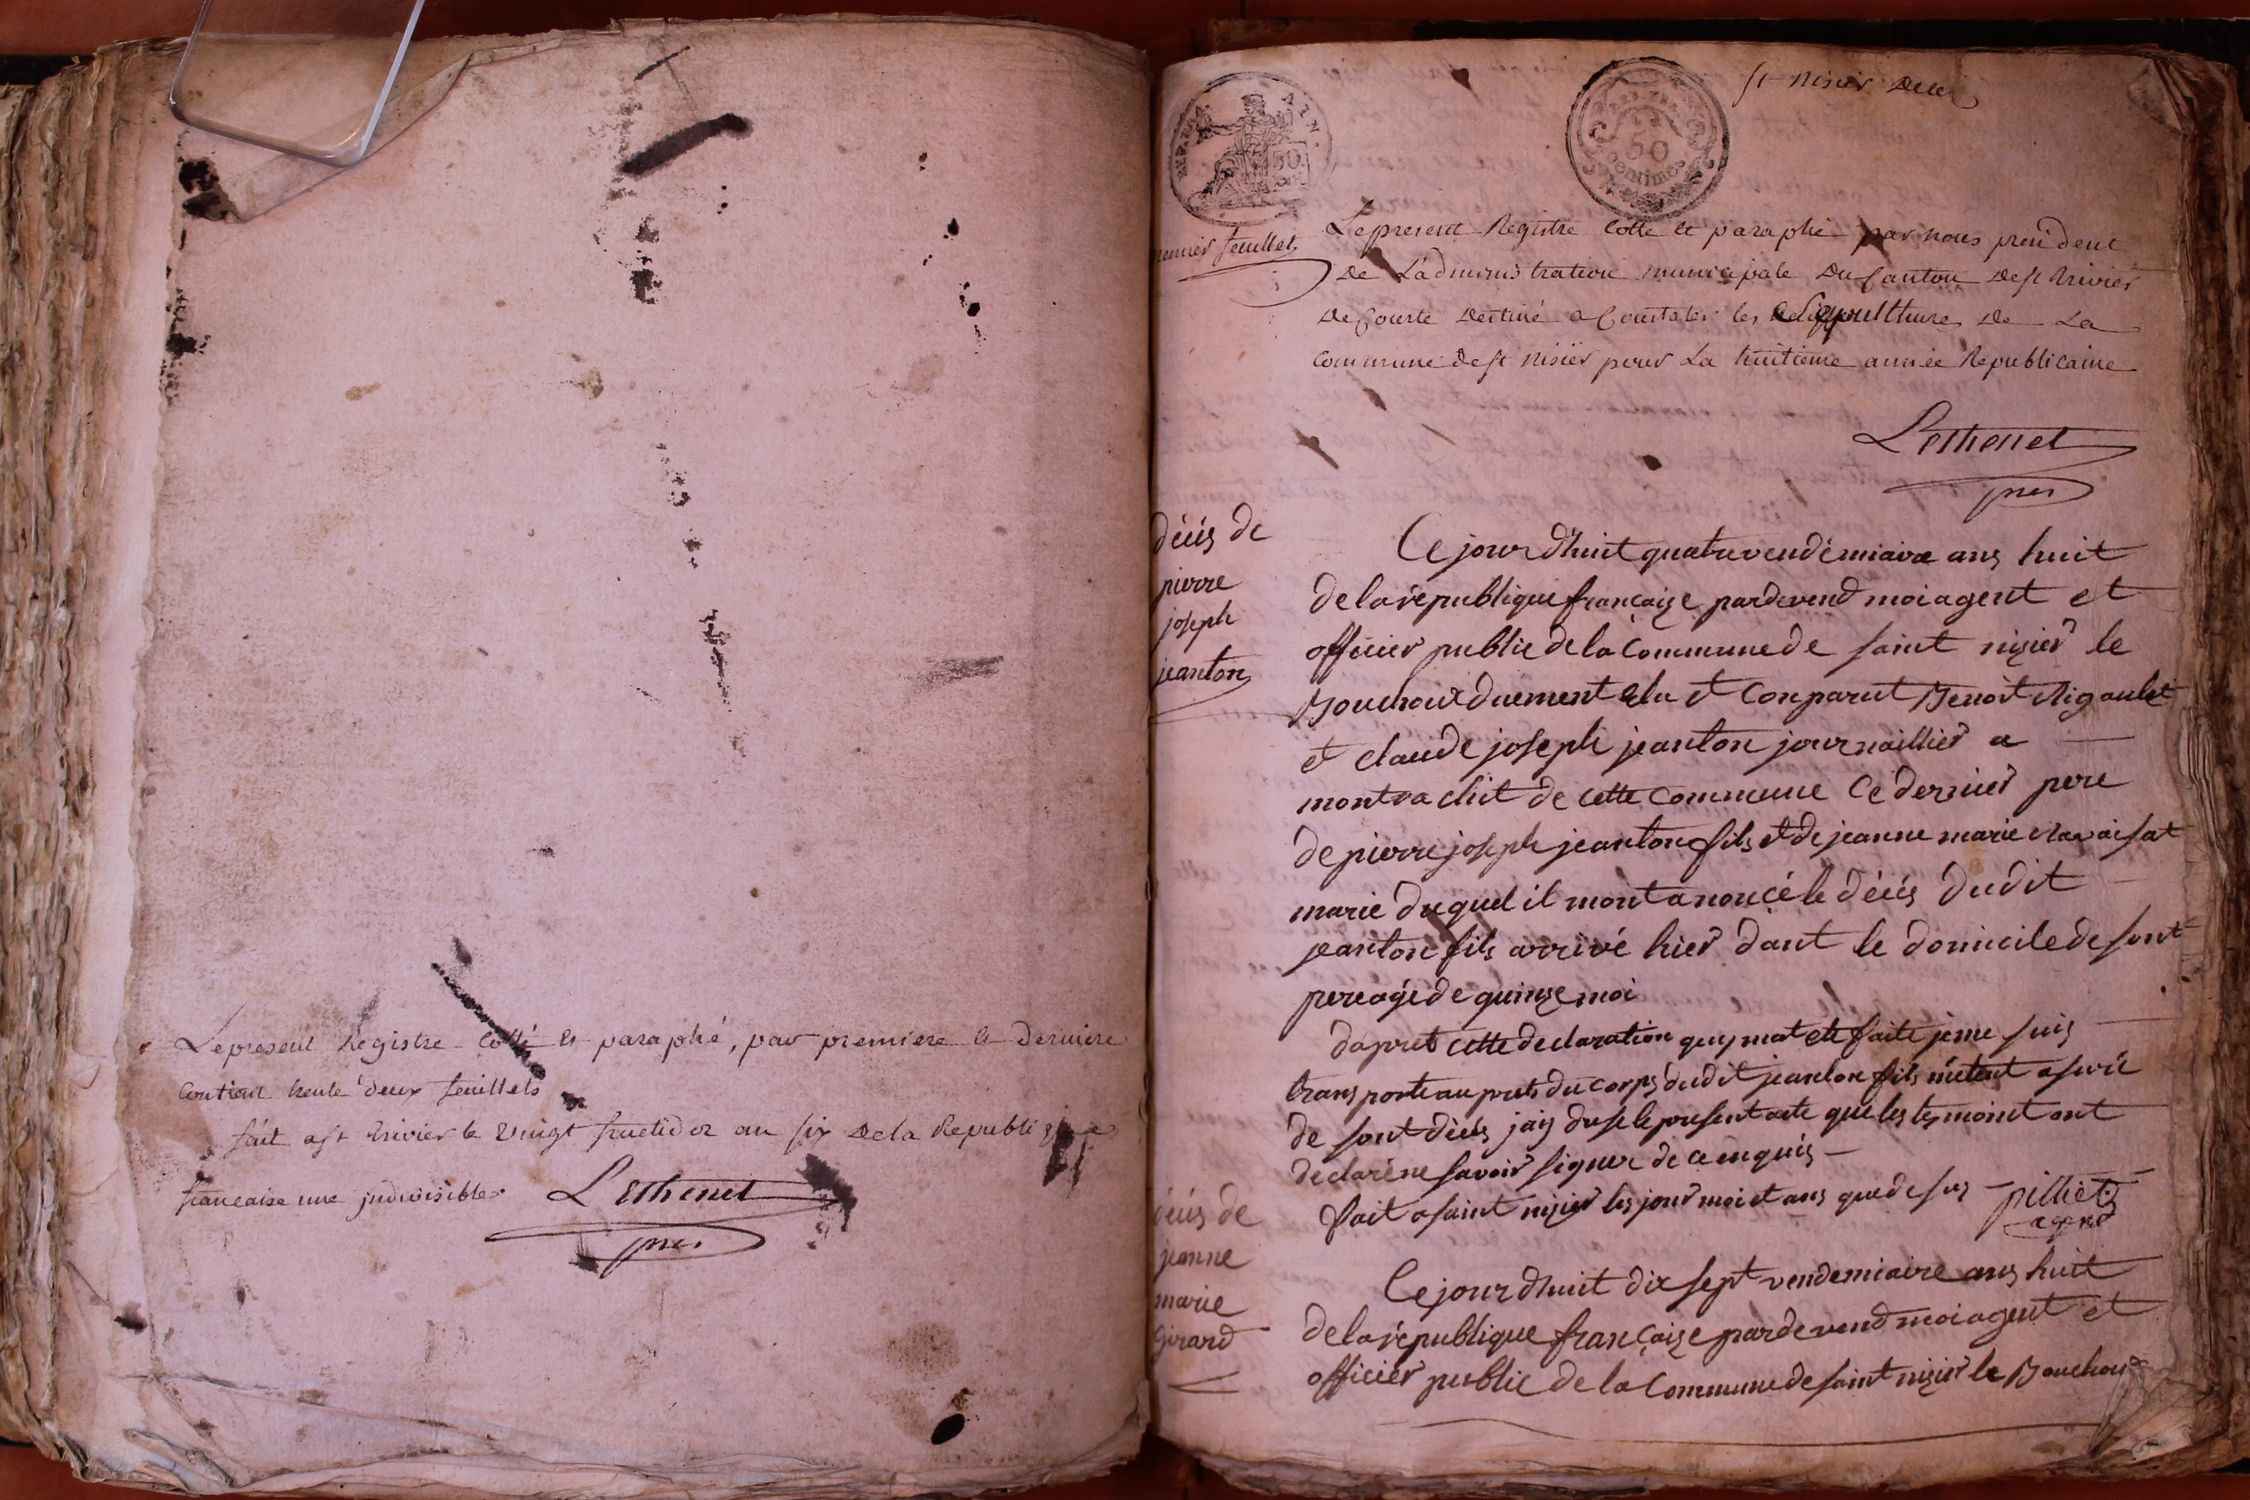 Le present Registre Cotté et paraphé, par premiere et derniere
Contient trente deux feuillets
fait a st trivier le vingt fructidor an six de la Republique
francaise une indivisible
Lethenet
pres
st nisier deces
50
50
centimes
premier feuillet
Le present Registre Cotté et paraphé par nous president
de L'administration municipale du Canton de st trivier
de Courte destiné a Constater les sepulthures de La
Commune de st nisier pour La huitieme année Republicaine
Lethenet
pres
décés de
pierre
joseph
jeanton
Ce jourd'huit quatre vendémiaire ans huit
de la république française pardevend moi agent et
officier public de la Commune de saint nizier le
Bouchoux duement elu et Conparut Benoit Rigaulet
et claude joseph jeanton journaillier a
montrachit de cette commune Ce dernier pere
de pierre joseph jeanton fils et de jeanne marie
marie duquel il mont anoncé le décés dudit
jeanton fils arrivé hier dant le domicile de sont
pere agé de quinze moi
dapret cette declaration quy mat eté faite je me suis
transporte au prets du corps dudit jeanton fils metent assuré
de sont décés jais dusse le present acte que les temoint ont
declaré ne savoir signer de ce enquis
fait a saint nizier les jour moi et ans que desus
pilliet
agent
décés de
jeanne
marie
Girard
Ce jourd'huit dix sept vendemiaire ans huit
de la république française pardevend moi agent et
officier public de la Commune de saint nizier le Bouchoux